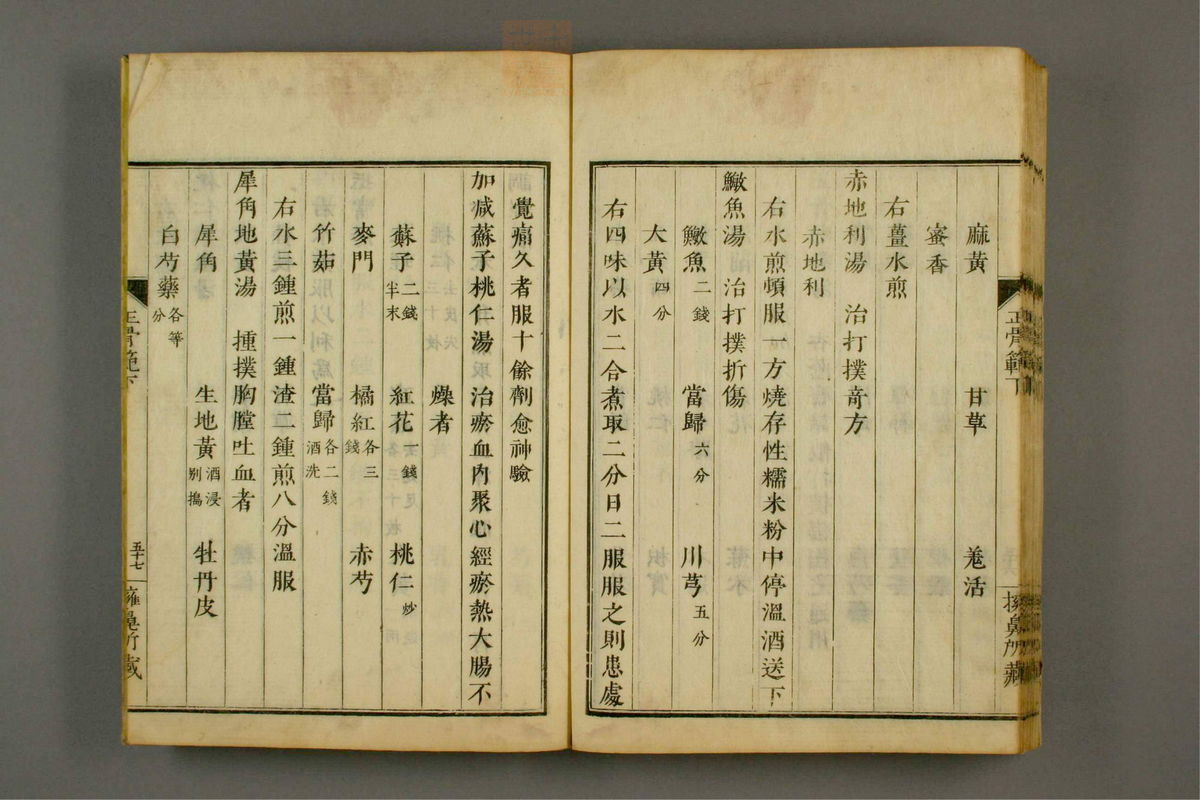 麻黃 甘草 羌活
蜜香
右薑水煎
赤地利湯 治打撲奇方
赤地利
右水煎頓服一方燒存性糯米粉中停溫酒送下
鱖魚湯 治打撲折傷
鱖魚二錢 當歸六分 川芎五分
大黃四分
右四味以水二合煮取二分日二服服之則患處
覺痛久者服十餘劑愈神驗
加減蘇子桃仁湯 治瘀血內聚心經瘀熱大腸不
燥者
蘇子二錢半末 紅花一錢 桃仁炒
麥門 橘紅各三錢 赤芍
竹茹 當歸各二錢酒洗
右水三鍾煎一鍾渣二鍾煎八分溫服
犀角地黃湯 㨂撲胸膛吐血者
犀角 生地黃酒浸別搗 牡丹皮
白芍藥各等分
正骨範下 五十七 擁鼻所藏
正骨範下 擁鼻所藏